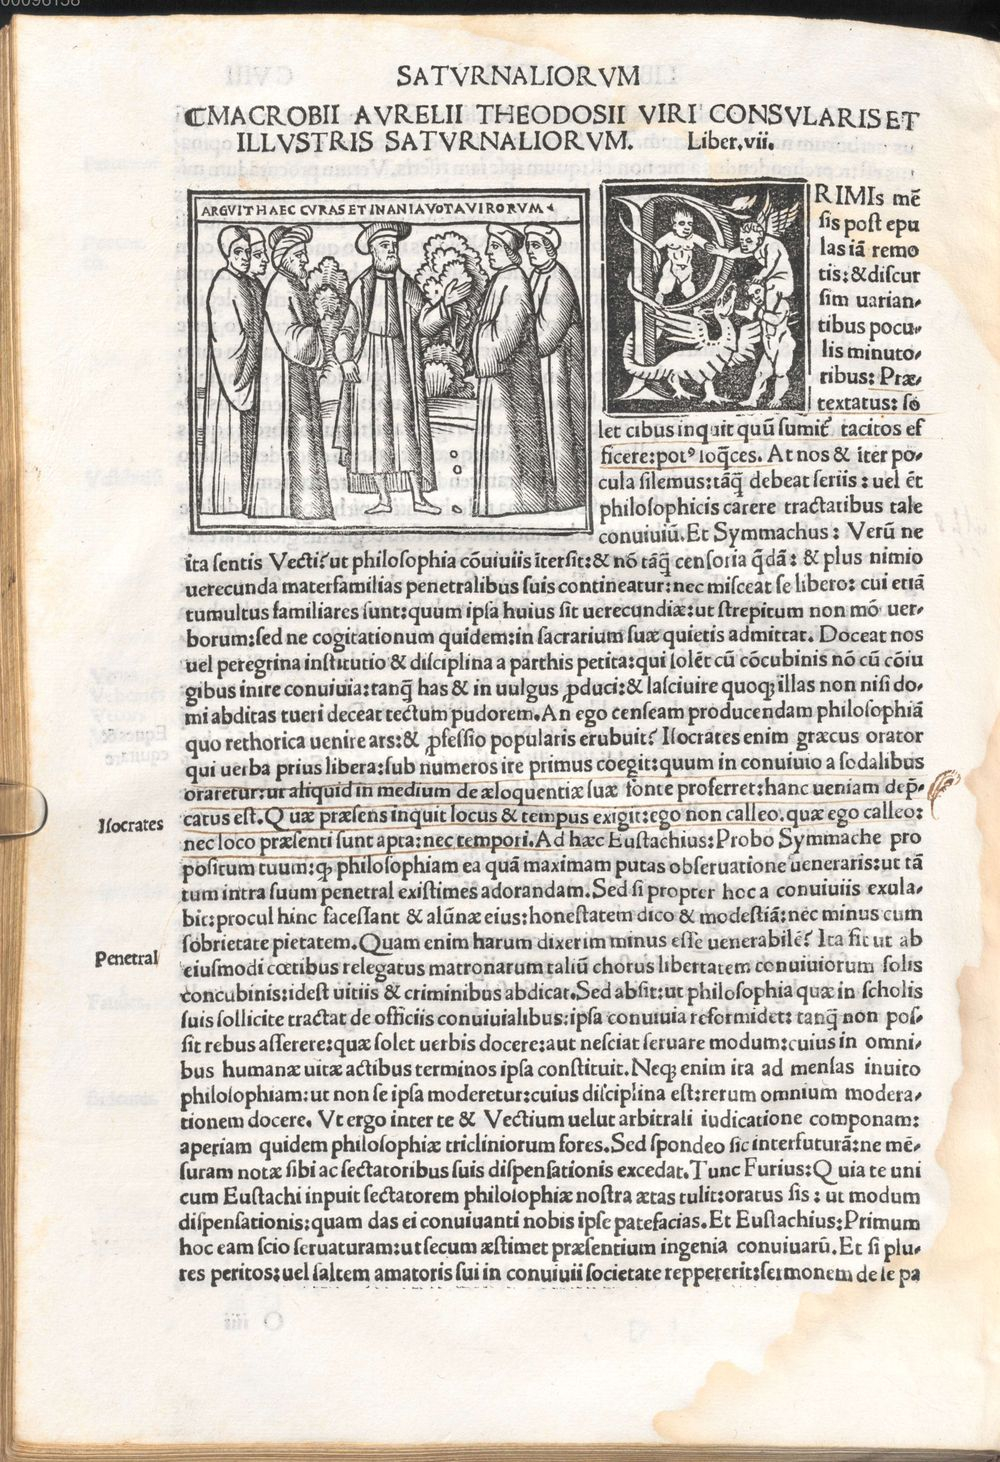 00096158
SATVRNALIORVM
ⅭMACROBII AVRELII THEODOSII VIRI CONSVLARIS ET
ILLVSTRIS SATVRNALIORVM. Liber.vii.
ARGVIT HAEC CVRAS ET INANIA VOTA VIRORVM
PRIMIs mē
ſis poſt epu
las iā remo
tis:&diſcur
ſim uarian⸗
tibus pocu⸗
lis minuto⸗
ribus: Præ⸗
textatus: ſo
let cibus inquit quū ſumit̄ tacitos ef
ficere:potꝰ loq̄ces. At nos & īter po⸗
cula ſilemus:tāq̄ debeat ſeriis : uel ēt
philoſophicis carere tractatibus tale
conuiuiū. Et Symmachus : Verū ne
ita ſentis Vecti? ut philoſophia cōuiuiis īterſit:& nō tāq̄ cenſoria q̄dā: & plus nimio
uerecunda materfamilias penetralibus ſuis contineatur:nec miſceat ſe libero: cui etiā
tumultus familiares ſunt:quum ipſa huius ſit uerecundiæ:ut ſtrepitum non mō uer⸗
borum:ſed ne cogitationum quidem:in ſacrarium ſuæ quietis admittat. Doceat nos
uel peregrina inſtitutio & diſciplina a parthis petita:qui ſolēt cū cōcubinis nō cū cōiu
gibus inire conuiuia:tanq̄ has & in uulgus ꝓduci:& laſciuire quoqꝫ illas non niſi do⸗
mi abditas tueri deceat tectum pudorem. An ego cenſeam producendam philoſophiā
quo rethorica uenire ars:& ꝓfeſſio popularis erubuit? Iſocrates enim græcus orator
qui uerba prius libera:ſub numeros ire primus coegit:quum in conuiuio a ſodalibus
oraretur:ut aliquid in medium de æloquentiæ ſuæ fonte proferret:hanc ueniam dep̄⸗
Iſocrates
catus eſt. Quæ præſens inquit locus & tempus exigit:ego non calleo. quæ ego calleo:
nec loco præſenti ſunt apta:nec tempori. Ad hæc Euſtachius: Probo Symmache pro
poſitum tuum:ꝙ philoſophiam ea quā maximam putas obſeruatione ueneraris:ut tā
tum intra ſuum penetral exiſtimes adorandam. Sed ſi propter hoc a conuiuiis exula⸗
bit:procul hinc faceſſant & alūnæ eius:honeſtatem dico & modeſtiā:nec minus cum
ſobrietate pietatem. Quam enim harum dixerim minus eſſe uenerabilē? Ita fit ut ab
Penetral
eiuſmodi cœtibus relegatus matronarum taliū chorus libertatem conuiuiorum ſolis
concubinis:ideſt uitiis & criminibus abdicat. Sed abſit:ut philoſophia quæ in ſcholis
ſuis ſollicite tractat de officiis conuiuialibus:ipſa conuiuia reformidet: tanq̄ non poſ⸗
ſit rebus aſſerere:quæ ſolet uerbis docere:aut neſciat ſeruare modum:cuius in omni⸗
bus humanæ uitæ actibus terminos ipſa conſtituit. Neqꝫ enim ita ad menſas inuito
philoſophiam:ut non ſe ipſa moderetur:cuius diſciplina eſt:rerum omnium modera⸗
tionem docere. Vt ergo inter te & Vectium uelut arbitrali iudicatione componam:
aperiam quidem philoſophiæ tricliniorum fores. Sed ſpondeo ſic interfuturā:ne mē⸗
ſuram notæ ſibi ac ſectatoribus ſuis diſpenſationis excedat. Tunc Furius:Quia te uni
cum Euſtachi inpuit ſectatorem philoſophiæ noſtra ætas tulit:oratus ſis : ut modum
diſpenſationis:quam das ei conuiuanti nobis ipſe patefacias. Et Euſtachius:Primum
hoc eam ſcio ſeruaturam:ut ſecum æſtimet præſentium ingenia conuiuarū. Et ſi plu⸗
res peritos:uel ſaltem amatoris ſui in conuiuii ſocietate reppererit:ſermonem de ſe pa